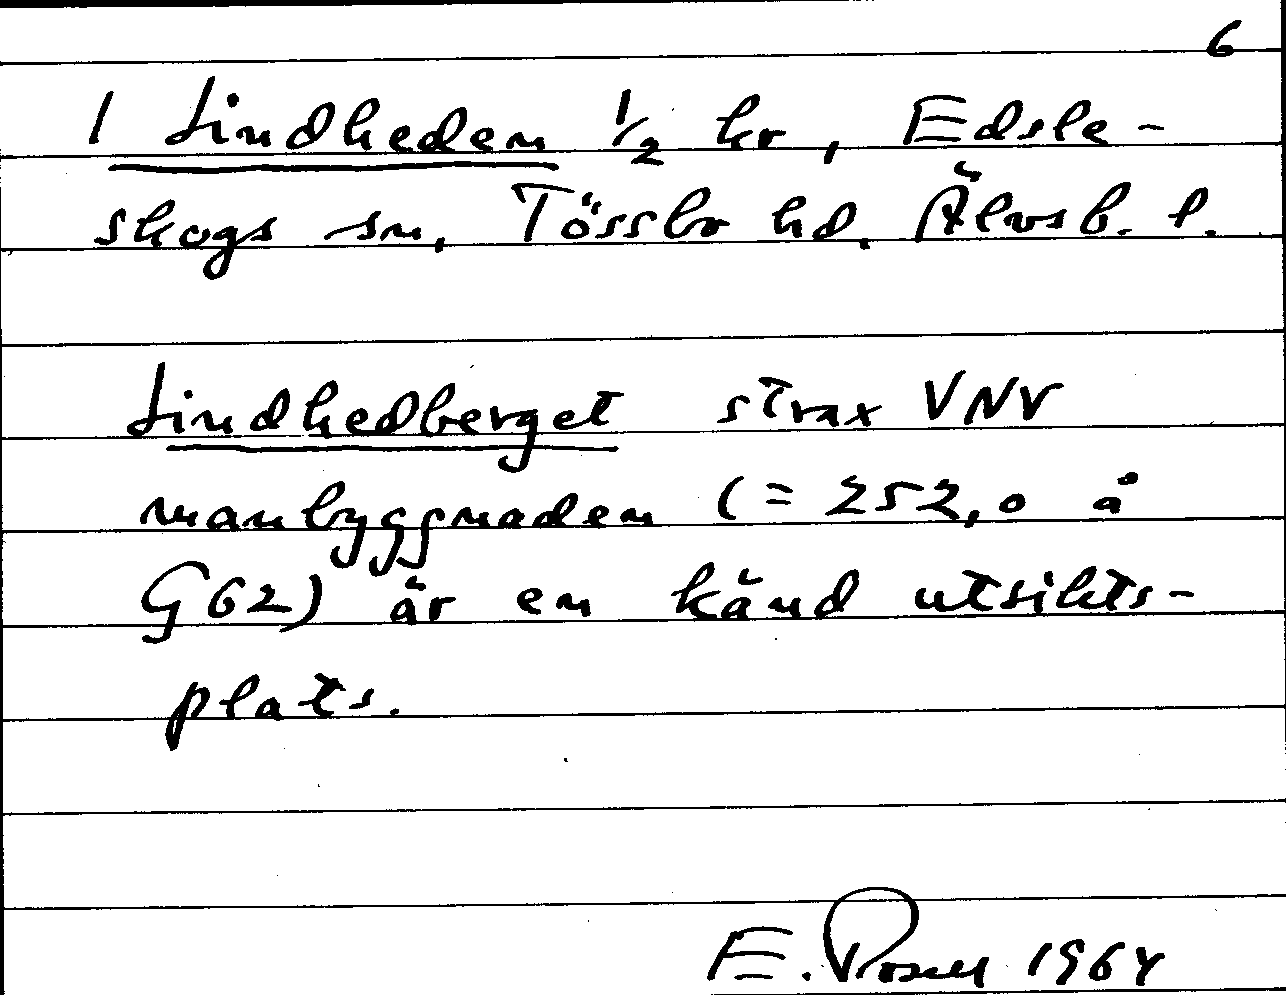 6
1 Lindheden 1/2 kr, Edsle-
skogs sn, Tössbo hd. Älvsb. l.
Lindhedberget strax VNV
manbyggnaden (= 252,0 å
G62) är en känd utsikts-
plats.
E. 1964